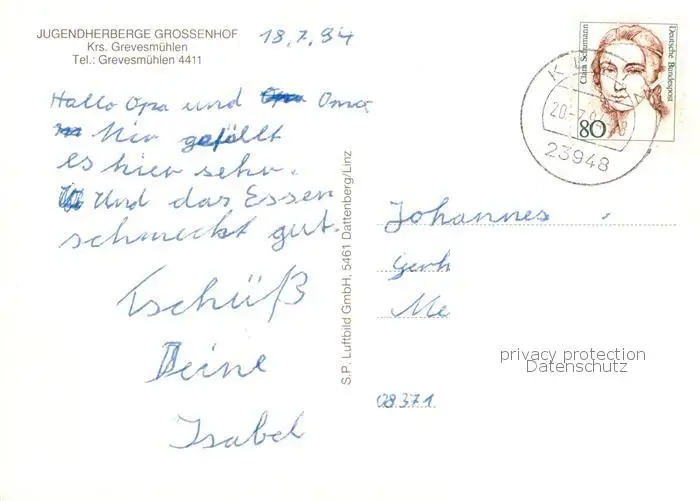 JUGENDHERBERGE GROSSENHOF
Krs. Grevesmühlen
Tel.: Grevesmühlen 4411
18.7.94
Hallo Opa und Oma
Mir gefällt
es hier sehr.
Und das Essen
schmeckt gut.
Tschüß
Deine
Isabel
S.P. Luftbild GmbH, 5461 Dattenberg/Linz
Clara Schumann
Deutsche Bundespost
80
20.-7.
23948
Johannes
Gerh
Me
08371
privacy protection
Datenschutz